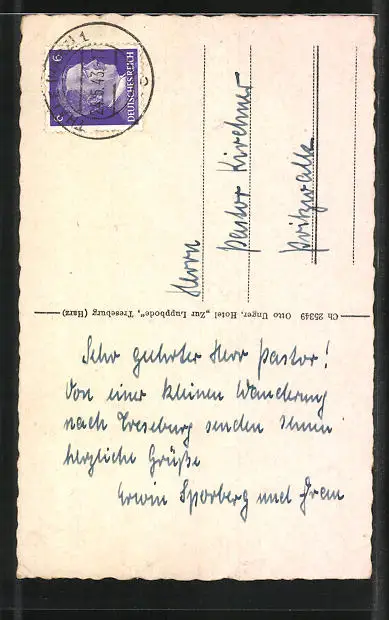 6
DEUTSCHES REICH
Herrn
Pastor Kirchner
Pritzwalk
Ch 25349 Otto Unger, Hotel „Zur Luppbode", Treseburg (Harz)
Sehr geehrter Herr Pastor!
Von einer kleinen Wanderung
nach Treseburg senden Ihnen
herzliche Grüße
Erwin Sporberg und Frau